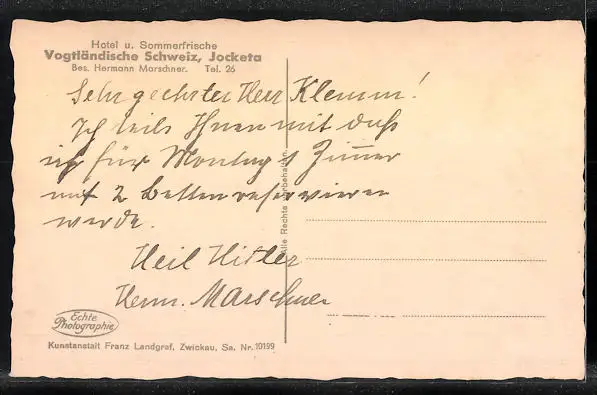 Hotel u. Sommerfrische
Vogtländische Schweiz, Jocketa
Bes. Hermann Marschner. Tel. 26
Sehr geehrter Herr Klemm!
Ich teile Ihnen mit daß
ich für Montag 1 Zimmer
mit 2 Betten reservieren
werde.
Heil Hitler
Herm. Marschner
Alle Rechte vorbehalten.
Echte
Photographie
Kunstanstalt Franz Landgraf, Zwickau, Sa. Nr. 10199